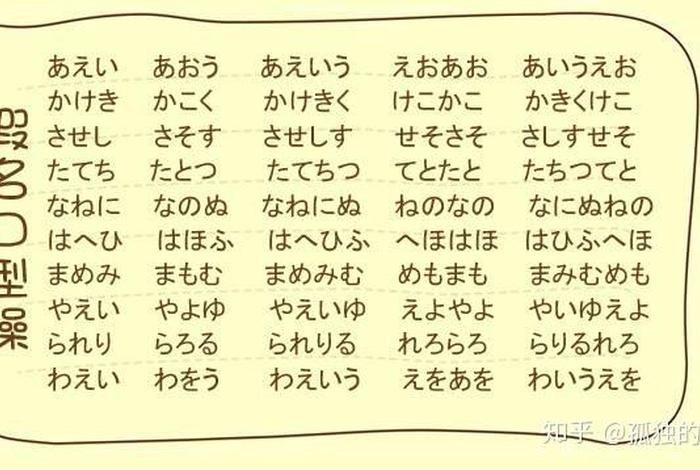 假名口型操
あえい あおう あえいう えおあお あいうえお
かけき かこく かけきく けこかこ かきくけこ
させし さそす させしす せそさそ さしすせそ
たてち たとつ たてちつ てとたと たちつてと
なねに なのぬ なねにぬ ねのなの なにぬねの
はへひ はほふ はへひふ へほはほ はひふへほ
まめみ まもむ まめみむ めもまも まみむめも
やえい やよゆ やえいゆ えよやよ やいゆえよ
られり らろる られりる れろらろ らりるれろ
わえい わをう わえいう えをあを わいうえを
知乎 @孤独的